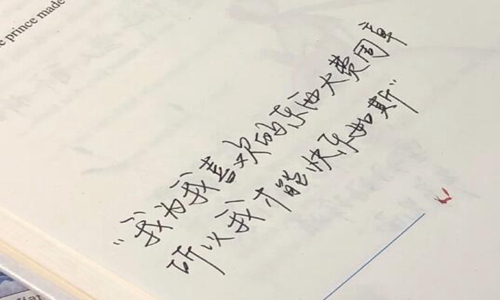 e prince made
“我为我喜欢的东西大费周章
所以我才能快乐如斯”